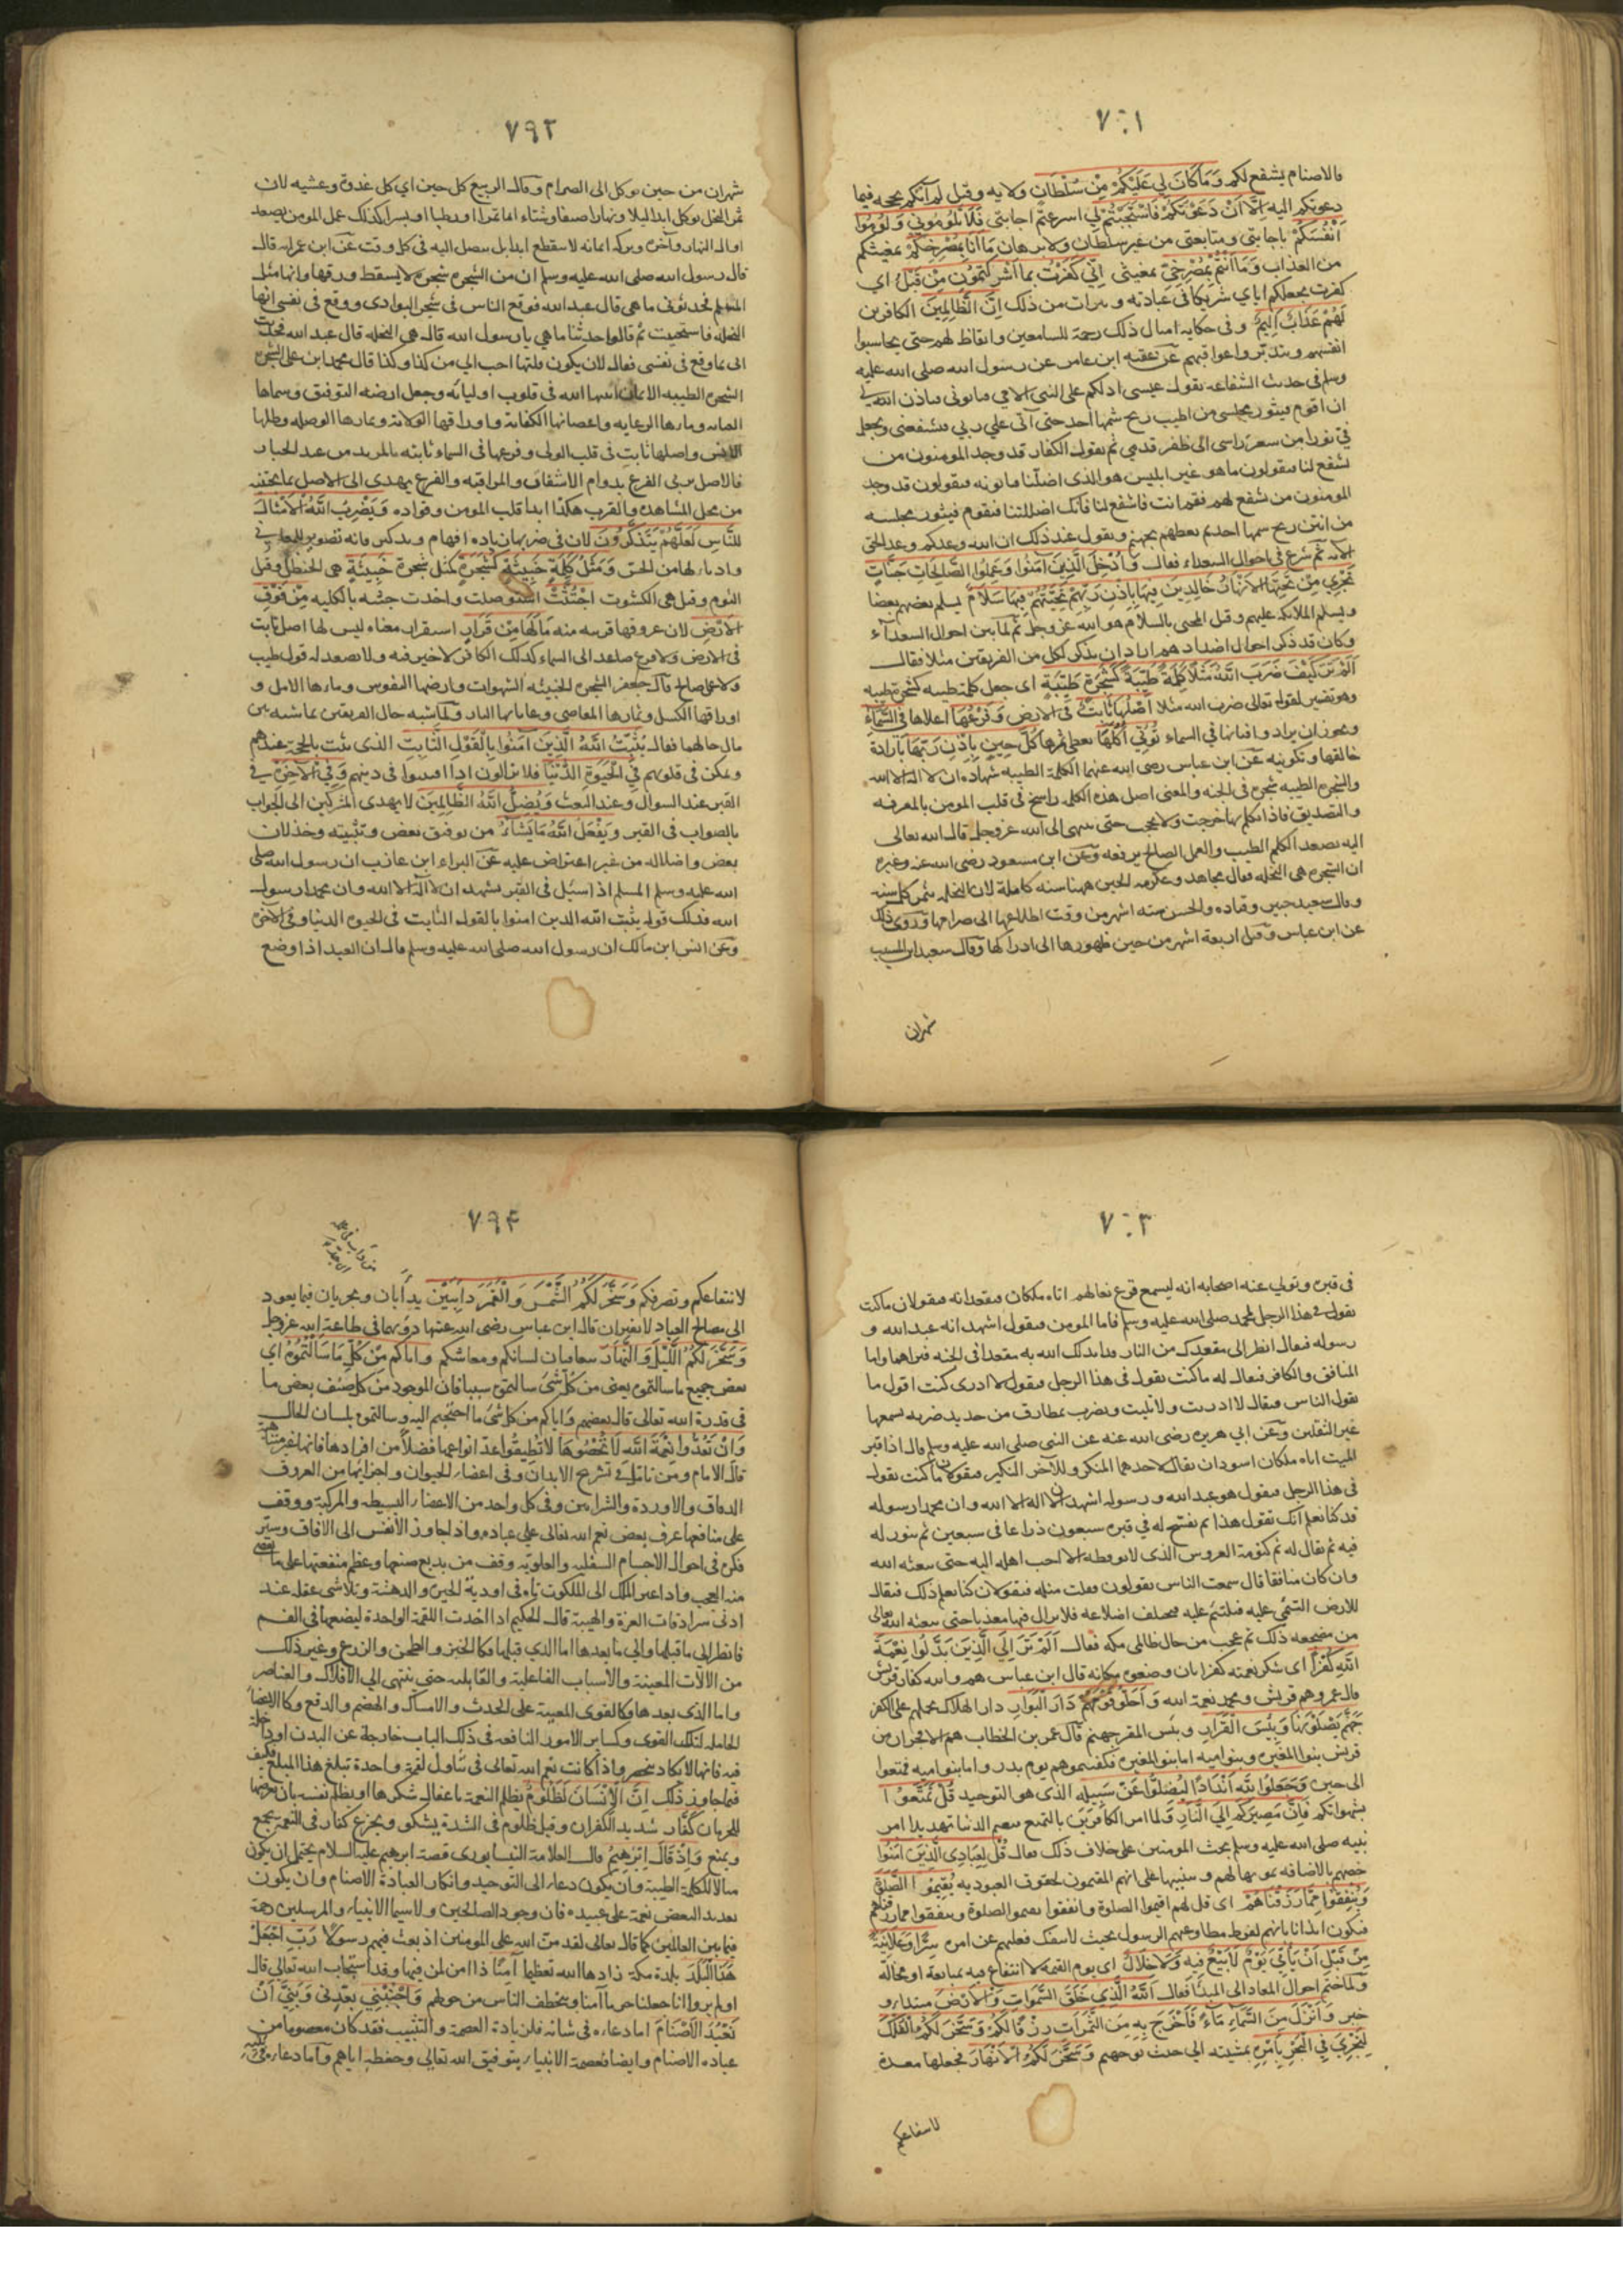 ٧٩١
فالاصنام يشفع لكم وَمَا كَانَ لِي عَلَيْكُمْ مِنْ سُلْطَانٍ ولايه وقيل لم آتكم بحجه فيما
دعوتكم اليه اِلَّا اَنْ دَعَوْتُكُمْ فَاسْتَجَبْتُمْ لِي اسرعتم اجابتي فَلَا تَلُومُونِي وَلُومُوا
اَنْفُسَكُمْ باجابتي ومتابعتي من غير سلطان ولا برهان مَا اَنَا بِمُصْرِخِكُمْ بمغيثكم
من العذاب وَمَا اَنْتُمْ بِمُصْرِخِيَّ بمغيثي اِنِّي كَفَرْتُ بِمَا اَشْرَكْتُمُونِ مِنْ قَبْلُ اي
كفرت بجعلكم اياي شريكا في عبادته وتبرات من ذلك اِنَّ الظَّالِمِينَ الكافرين
لَهُمْ عَذَابٌ اَلِيمٌ وفي حكايه امثال ذلك رحمة للسامعين وايقاظ لهم حتى يحاسبوا
انفسهم ويتدبروا عواقبهم عن عقبه ابن عامر عن رسول الله صلى الله عليه
وسلم في حديث الشفاعه يقول عيسى ادلكم على النبي الامي فياتوني فياذن الله لي
ان اقوم فيثور مجلسي من اطيب ريح شمها احد حتى آتي علي ربي فيشفعني ويجعل
في نورا من سعر راسي الى ظفر قدمي ثم يقول الكفار قد وجد المومنون من
يشفع لنا فيقولون ما هو غير ابليس هو الذي اضلنا فياتونه فيقولون قد وجد
المومنون من شفع لهم فقم انت فاشفع لنا فانك اضللتنا فيقوم فيثور مجلسه
من انتن ريح شمها احد ثم يعظهم بجهنم ويقول عند ذلك ان الله وعدكم وعد الحق
الآيه ثم شرع في احوال السعداء فقال وَاُدْخِلَ الَّذِينَ آمَنُوا وَعَمِلُوا الصَّالِحَاتِ جَنَّاتٍ
تَجْرِي مِنْ تَحْتِهَا الْاَنْهَارُ خَالِدِينَ فِيهَا بِاِذْنِ رَبِّهِمْ تَحِيَّتُهُمْ فِيهَا سَلَامٌ يسلم بعضهم بعضا
ويسلم الملائكه عليهم وقيل المحيي بالسلام هو الله عز وجل ثم لما بين احوال السعداء
وكان قد ذكر احوال اضدادهم اراد ان يذكر لكل من الفريقين مثلا فقال
اَلَمْ تَرَ كَيْفَ ضَرَبَ اللّٰهُ مَثَلًا كَلِمَةً طَيِّبَةً كَشَجَرَةٍ طَيِّبَةٍ اى جعل كلمة طيبه كشجرة طيبه
وهو تفسير لقوله تعالى ضرب الله مثلا اَصْلُهَا ثَابِتٌ في الارض وَفَرْعُهَا اعلاها فِي السَّمَاءِ
ويجوز ان يراد وافنانها في السماء تُؤْتِي اُكُلَهَا يعطي ثمرها كُلَّ حِينٍ بِاِذْنِ رَبِّهَا بارادة
خالقها وتكوينه عن ابن عباس رضي الله عنهما الكلمة الطيبه شهادة ان لا اله الا الله
والشجرة الطيبه شجره في الجنه والمعنى اصل هذه الكلمه راسخ في قلب المومن بالمعرفه
والتصديق فاذا تكلم بها خرجت ولا تحجب حتى تنتهي الى الله عز وجل قال الله تعالى
اليه يصعد الكلم الطيب والعمل الصالح يرفعه وعن ابن مسعود رضي الله عنه وغيره
ان الشجره هي النخله فقال مجاهد وعكرمه الحين ههنا سنه كامله لان النخله تثمر كل سنه
وقال سعيد جبير وقتاده والحسن سته اشهر من وقت اطلاعها الى صرامها وروى ذلك
عن ابن عباس وقيل اربعة اشهر من حين ظهورها الى ادراكها وقال سعيد ابن المسيب
شهران
٧٩٢
شهران من حين توكل الى الصرام وقال الربيع كل حين اي كل غدوة وعشيه لان
ثمر النخل توكل ابدا ليلا ونهارا صيفا وشتاء اما تمرا او رطبا او بسرا كذلك عمل المومن يصعد
اول النهار وآخره وبركه ايمانه لا تنقطع ابدا بل تصل اليه في كل وقت عن ابن عمر انه قال
قال رسول الله صلى الله عليه وسلم ان من الشجره شجرة لا يسقط ورقها وانها مثل
المسلم فحدثوني ما هي قال عبد الله فوقع الناس في شجر البوادى ووقع في نفسي انها
النخله فاستحييت ثم قالوا حدثنا ما هي يا رسول الله قال هي النخله قال عبد الله فحدثت
ابي بما وقع في نفسي فقال لان يكون قلتها احب الي من كذا وكذا قال محمد ابن علي الشجرة
الشجره الطيبه الايمان اثبتها الله في قلوب اوليائه وجعل ارضه التوفيق وسماها
العنايه وماءها الرعايه واغصانها الكفايه واوراقها الولاية وثمارها الوصله وظلها
الانس واصلها ثابت في قلب الولى وفرعها في السماء ثابته بالمزيد من عند الجبار
فالاصل يربي الفرع بدوام الاشفاق والمراقبه والفرع يهدى الى الاصل بما يجتنيه
من محل المشاهده والقرب هكذا ابدا قلب المومن وفواده وَيَضْرِبُ اللّٰهُ الْاَمْثَالَ
لِلنَّاسِ لَعَلَّهُمْ يَتَذَكَّرُونَ لان في ضربها زياده افهام وتذكير فانه تصوير للمعاني
وادناء لها من الحس وَمَثَلُ كَلِمَةٍ خَبِيثَةٍ كَشَجَرَةٍ كمثل شجرة خَبِيثَةٍ هي الحنظل وقيل
الثوم وقيل هي الكشوث اجْتُثَّتْ استوصلت واخذت جثته بالكليه مِنْ فَوْقِ
الْاَرْضِ لان عروقها قريبه منه مَا لَهَا مِنْ قَرَارٍ استقرار معناه ليس لها اصل ثابت
في الارض ولا فرع صاعد الى السماء كذلك الكافر لا خير فيه ولا يصعد له قول طيب
ولا عمل صالح قال جعفر الشجرة الخبيثه الشهوات وارضها النفوس وماءها الامل و
اوراقها الكسل وثمارها المعاصي وغاياتها النار ولما شبه حال الفريقين بما شبه بين
مال حالهما فقال يُثَبِّتُ اللّٰهُ الَّذِينَ آمَنُوا بِالْقَوْلِ الثَّابِتِ الذى ثبت بالحجة عندهم
وتمكن في قلوبهم فِي الْحَيٰوةِ الدُّنْيَا فلا يزالون اذا افتتنوا في دينهم وَفِي الْآخِرَةِ في
القبر عند السوال وعند البعث وَيُضِلُّ اللّٰهُ الظَّالِمِينَ لا يهدى المشركين الى الجواب
بالصواب في القبر وَيَفْعَلُ اللّٰهُ مَا يَشَاءُ من توفيق بعض وتثبيته وخذلان
بعض واضلاله من غير اعتراض عليه عن البراء ابن عازب ان رسول الله صلى
الله عليه وسلم المسلم اذا سئل في القبر يشهد ان لا اله الا الله وان محمدا رسول
الله فذلك قوله يثبت الله الذين امنوا بالقول الثابت في الحيوة الدنيا وفي الآخرة
وعن انس ابن مالك ان رسول الله صلى الله عليه وسلم قال ان العبد اذا وضع
٧٩٣
في قبره وتولي عنه اصحابه انه ليسمع قرع نعالهم اتاه ملكان فيقعدانه فيقولان ما كنت
تقول في هذا الرجل لمحمد صلى الله عليه وسلم فاما المومن فيقول اشهد انه عبد الله و
رسوله فيقال انظر الى مقعدك من النار قد ابدلك الله به مقعدا في الجنه فيراهما واما
المنافق والكافر فيقال له ما كنت تقول في هذا الرجل فيقول لا ادرى كنت اقول ما
يقول الناس فيقال لا ادريت ولا تليت ويضرب بمطارق من حديد ضربه يسمعها
غير الثقلين وعن ابي هريره رضى الله عنه عن النبي صلى الله عليه وسلم قال اذا قبر
الميت اتاه ملكان اسودان يقال لاحدهما المنكر وللآخر النكير فيقولان ما كنت تقول
في هذا الرجل فيقول هو عبد الله ورسوله اشهد ان لا اله الا الله وان محمدا رسوله
قد كنا نعلم انك تقول هذا ثم يفتح له في قبره سبعون ذراعا في سبعين ثم ينور له
فيه ثم يقال له نم كنومة العروس الذى لا يوقظه الا احب اهله اليه حتى يبعثه الله
وان كان منافقا قال سمعت الناس يقولون فقلت مثله فيقولان كنا نعلم ذلك فيقال
للارض التئمى عليه فتلتئم عليه فتختلف اضلاعه فلا يزال فيها معذبا حتى يبعثه الله تعالى
من مضجعه ذلك ثم عجب من حال ظالمي مكه فقال اَلَمْ تَرَ اِلَى الَّذِينَ بَدَّلُوا نِعْمَةَ
اللّٰهِ كُفْرًا اى شكر نعمته كفرا بان وضعوه مكانه قال ابن عباس هم والله كفار قريش
قال عمر وهم قريش ومحمد نعمة الله وَاَحَلُّوا قَوْمَهُمْ دَارَ الْبَوَارِ دار الهلاك بحملهم على الكفر
جَهَنَّمَ يَصْلَوْنَهَا وَبِئْسَ الْقَرَارُ وبئس المقر جهنم قال عمر بن الخطاب هم الافجران من
قريش بنوا المغيره وبنوا اميه اما بنوا المغيره فكفيتموهم يوم بدر واما بنوا اميه فمتعوا
الى حين وَجَعَلُوا لِلّٰهِ اَنْدَادًا لِيُضِلُّوا عَنْ سَبِيلِهِ الذى هو التوحيد قُلْ تَمَتَّعُوا
بشهواتكم فَاِنَّ مَصِيرَكُمْ اِلَى النَّارِ ولما امر الكافرين بالتمتع بنعيم الدنيا تهديدا امر
نبيه صلى الله عليه وسلم بحث المومنين على خلاف ذلك فقال قُلْ لِعِبَادِيَ الَّذِينَ آمَنُوا
خصهم بالاضافه تنويها لهم وتنبيها على انهم المقيمون لحقوق العبوديه يُقِيمُوا الصَّلٰوةَ
وَيُنْفِقُوا مِمَّا رَزَقْنَاهُمْ اى قل لهم اقيموا الصلوة وانفقوا يقيموا الصلوة وينفقوا مما رزقناهم
فيكون ايذانا بانهم لفرط مطاوعتهم الرسول بحيث لا ينفك فعلهم عن امره سِرًّا وَعَلَانِيَةً
مِنْ قَبْلِ اَنْ يَأْتِيَ يَوْمٌ لَا بَيْعٌ فِيهِ وَلَا خِلَالٌ اى يوم القيمة لا انتفاع فيه بمبايعة او مخالة
ولما ختم احوال المعاد الى المبدا فقال اَللّٰهُ الَّذِي خَلَقَ السَّمٰوَاتِ وَالْاَرْضَ مبتداء و
خبر وَاَنْزَلَ مِنَ السَّمَاءِ مَاءً فَاَخْرَجَ بِهِ مِنَ الثَّمَرَاتِ رِزْقًا لَكُمْ وَسَخَّرَ لَكُمُ الْفُلْكَ
لِتَجْرِيَ فِي الْبَحْرِ بِاَمْرِهِ بمشيته الى حيث توجهتم وَسَخَّرَ لَكُمُ الْاَنْهَارَ فجعلها معدة
لانتفاعكم
٧٩٤
لانتفاعكم وتصرفكم وَسَخَّرَ لَكُمُ الشَّمْسَ وَالْقَمَرَ دَائِبَيْنِ يدأبان ويجريان فيما يعود
الى مصالح العباد لا يفتران قال ابن عباس رضى الله عنهما دؤبهما في طاعة الله عز وجل
وَسَخَّرَ لَكُمُ اللَّيْلَ وَالنَّهَارَ يتعاقبان لسباتكم ومعاشكم وَآتَاكُمْ مِنْ كُلِّ مَا سَاَلْتُمُوهُ اي
بعض جميع ما سالتموه يعني من كل شئ سالتموه شيئا فان الموجود من كل صنف بعض ما
في قدرة الله تعالى قال بعضهم وآتاكم من كل شئ ما احتجتم اليه وسالتموه بلسان الحال
وَاِنْ تَعُدُّوا نِعْمَةَ اللّٰهِ لَا تُحْصُوهَا لا تطيقوا عد انواعها فضلا من افرادها فانها غير متناهية
قال الامام ومن تامل في تشريح الابدان وفي اعضاء الحيوان واجزائها من العروق
الدقاق والاوردة والشرايين وفي كل واحد من الاعضاء البسيطه والمركبة ووقف
على منافعها عرف بعض نعم الله تعالى على عباده واذا جاوز الانفس الى الافاق وسير
فكره في احوال الاجسام السفليه والعلويه وقف من بديع صنعها وعظم منفعتها على ما يقضى
منه العجب واذا عبر الملك الى الملكوت تاه في اودية الحيرة والدهشة وتلاشى عقله عند
ادنى سرادقات العزة والهيبة قال الحكيم اذا اخذت اللقمة الواحدة ليضعها في الفم
فانظر الى ما قبلها والى ما بعدها اما الذي قبلها فكالخبز والطحن والزرع وغير ذلك
من الآلات المعينة والاسباب الفاعلية والقابليه حتى ينتهى الي الافلاك والعناصر
واما الذى بعدها فكالقوى المعينة على الجذب والامساك والهضم والدفع وكالاعضاء
الحامله لتلك القوى وكسائر الامور النافعه في ذلك الباب خارجة عن البدن او داخلة
فيه فانها لا تكاد تنحصر واذا كانت نعم الله تعالى في تناول لقمة واحدة تبلغ هذا المبلغ فكيف
فيما جاوز ذلك اِنَّ الْاِنْسَانَ لَظَلُومٌ يظلم النعمة باغفال شكرها او يظلم نفسه بان يعرضها
للحرمان كَفَّارٌ شديد الكفران وقيل ظلوم في الشدة يشكو ويجزع كفار في النعمة يجمع
ويمنع وَاِذْ قَالَ اِبْرٰهِيمُ قال العلامة النيسابورى قصة ابرهيم عليه السلام يحتمل ان يكون
مثالا للكلمة الطيبة وان يكون دعاء الى التوحيد وانكار العبادة الاصنام وان يكون
تعديد البعض نعمه على عبيده فان وجود الصالحين ولاسيما الانبياء والمرسلين رحمة
فيما بين العالمين كما قال تعالى لقد من الله على المومنين اذ بعث فيهم رسولا رَبِّ اجْعَلْ
هٰذَا الْبَلَدَ بلدة مكة زادها الله تعظيما آمِنًا ذا امن لمن فيها وقد استجاب الله تعالى قال
اولم يروا انا جعلنا حرما آمنا ويتخطف الناس من حولهم وَاجْنُبْنِي بعدني وَبَنِيَّ اَنْ
نَعْبُدَ الْاَصْنَامَ اما دعاءه في شانه فلزيادة العصمة والتثبيت فقد كان معصوما من
عباده الاصنام وايضا فعصمة الانبياء بتوفيق الله تعالى وحفظه اياهم واما دعاءه في بنيه